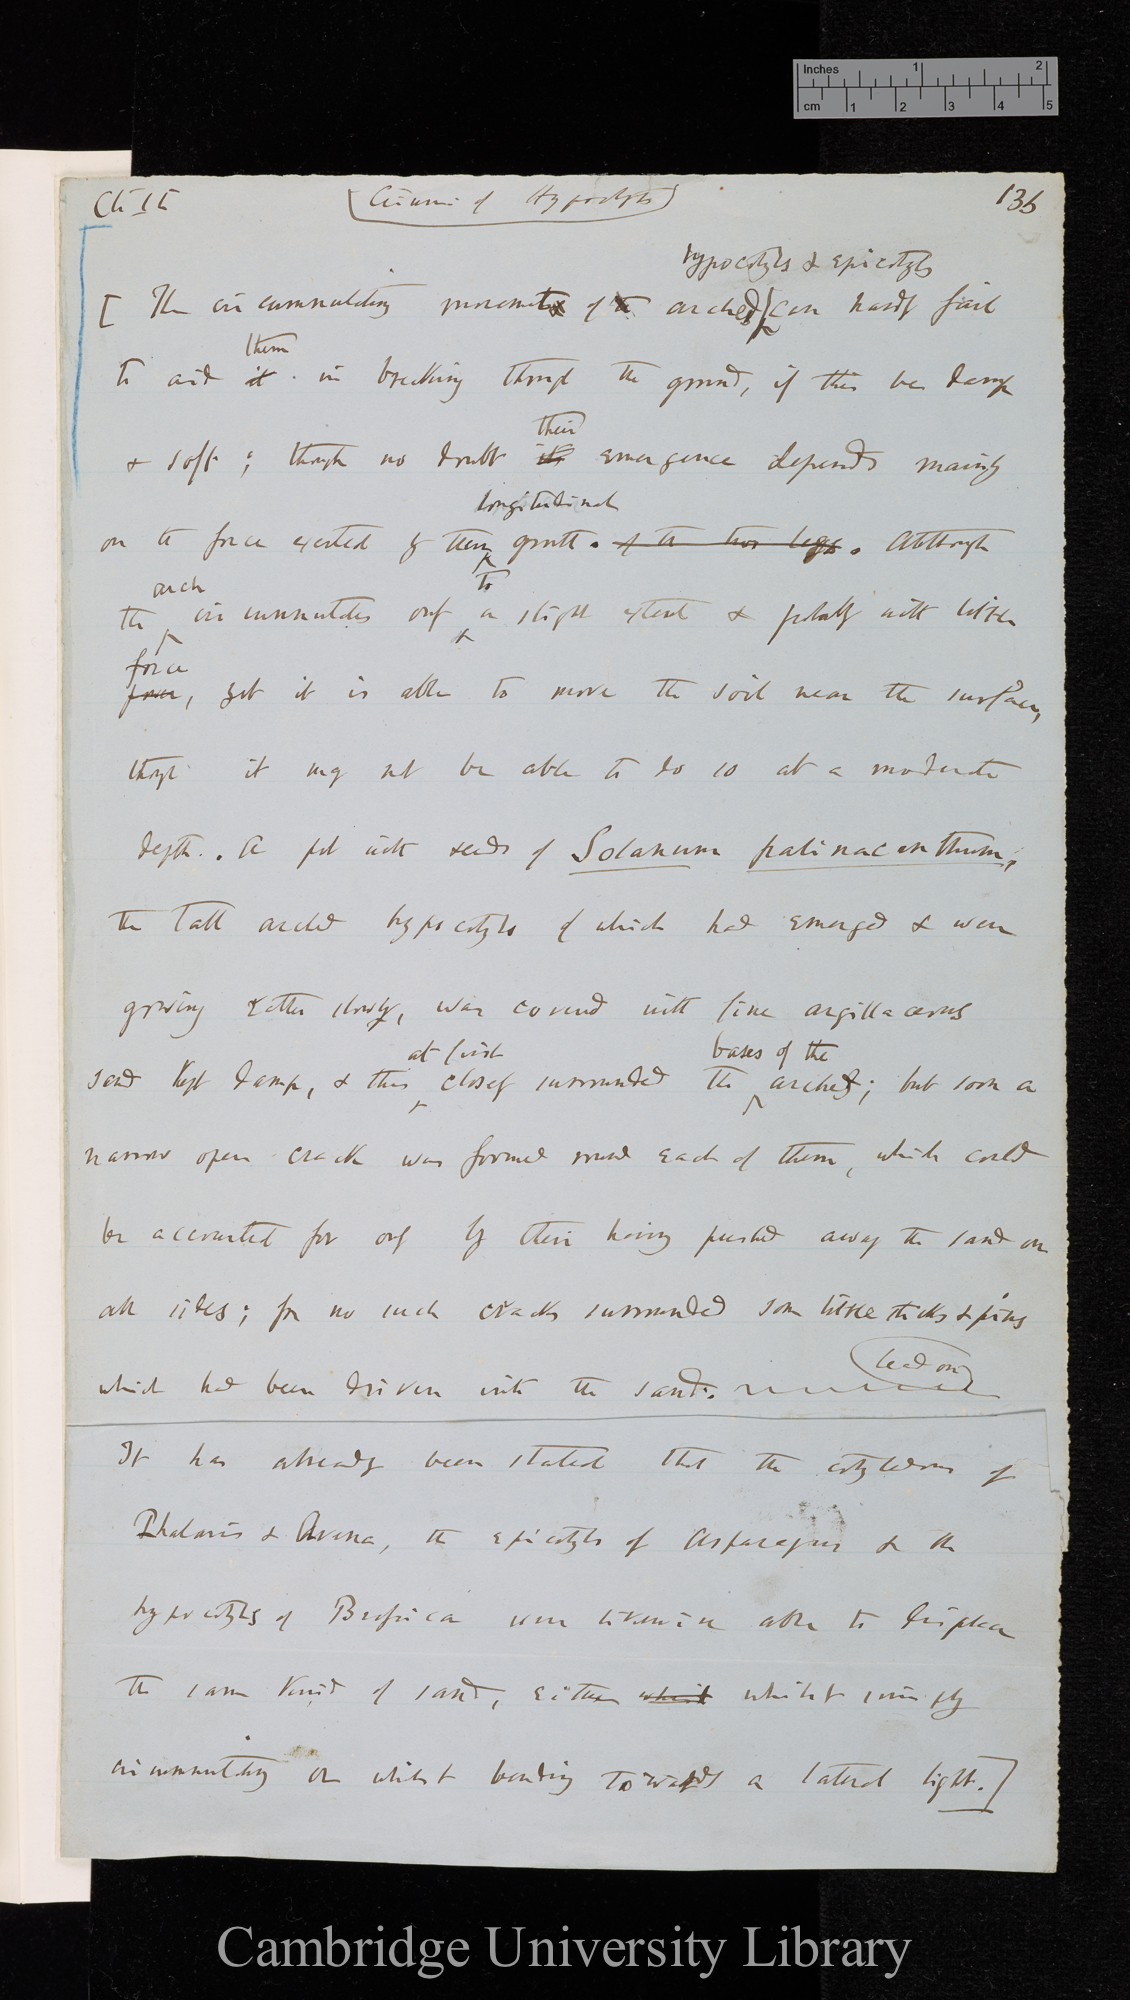 Inches 1 2
cm 1 2 3 4 5
Ch II (Circum: of Hypocotyls) 136
hypocotyls & epicotyls
[ The circumnutating movements of the arched can hardly fail
them
to aid it in breaking through the ground, if this be damp
their
& soft; though no doubt its emergence depends mainly
longitudinal
on the force exerted by their growth. of the two legs. Although
arch to
the circumnutates only a slight extent & probably with little
force
force, yet it is able to move the soil near the surface,
though it may not be able to do so at a moderate
depth. A pot with seeds of Solanum palinacanthum,
the tall arched hypocotyls of which had emerged & were
growing rather slowly, was covered with fine argillaceous
at first bases of the
sand kept damp, & this closely surrounded the arches; but soon a
narrow open crack was formed round each of them, which could
be accounted for only by their having pushed away the sand on
all sides; for no such cracks surrounded some little sticks & pins
which had been driven into the sand. (lead on)
It has already been stated that the cotyledons of
Phalaris & Avena, the epicotyls of Asparagus & the
hypocotyls of Brassica were likewise able to displace
the same kind of sand, either whilst whilst simply
circumnutating or whilst bending towards a lateral light.]
Cambridge University Library